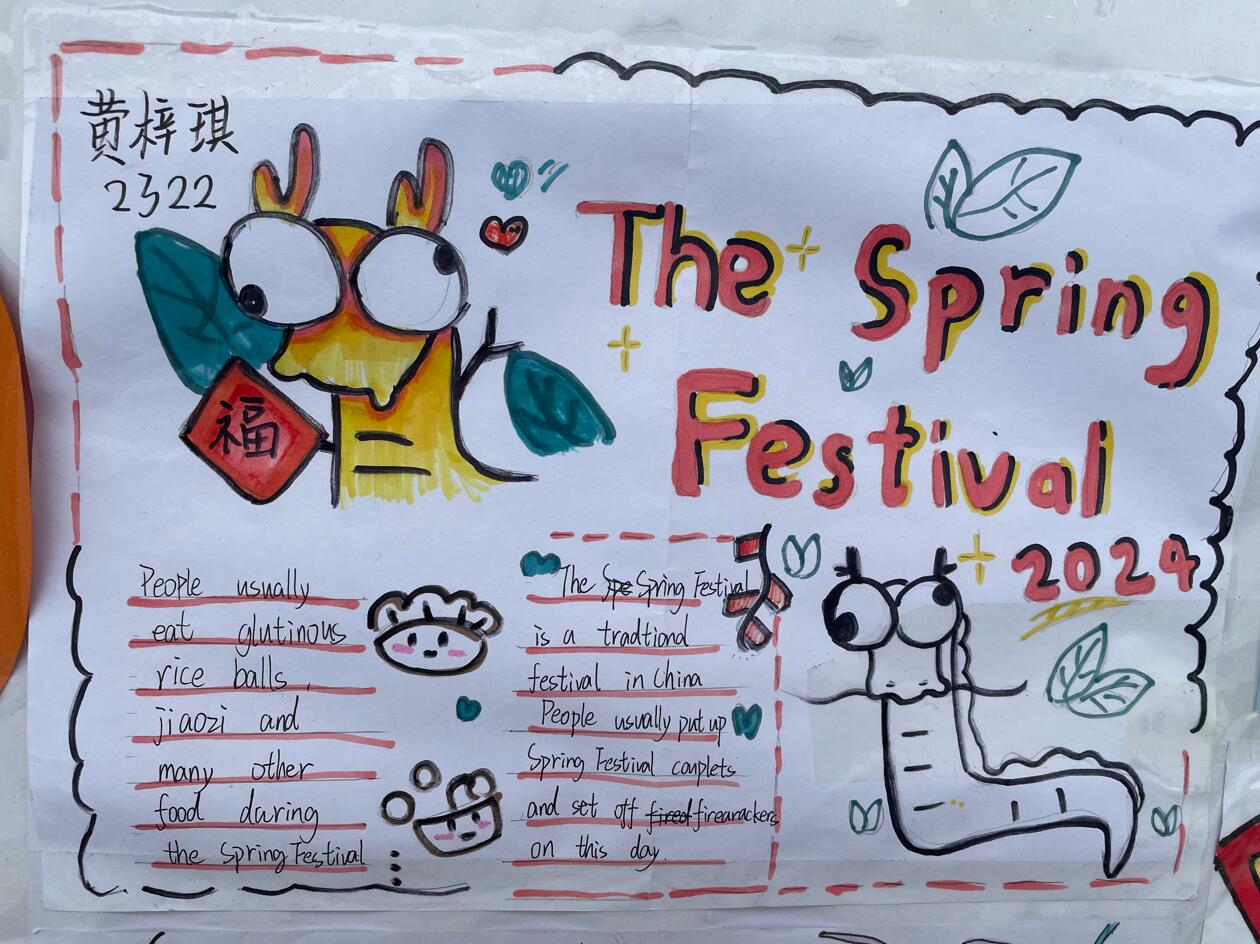 黄梓琪
2322
The Spring
Festival
2024
福
People usually
eat glutinous
rice balls,
jiaozi and
many other
food during
the Spring Festival
The Spe Spring Festival
is a tradtiond
festival in China
People usually put up
Spring Festival couplets
and set off fired firearackers
on this day.